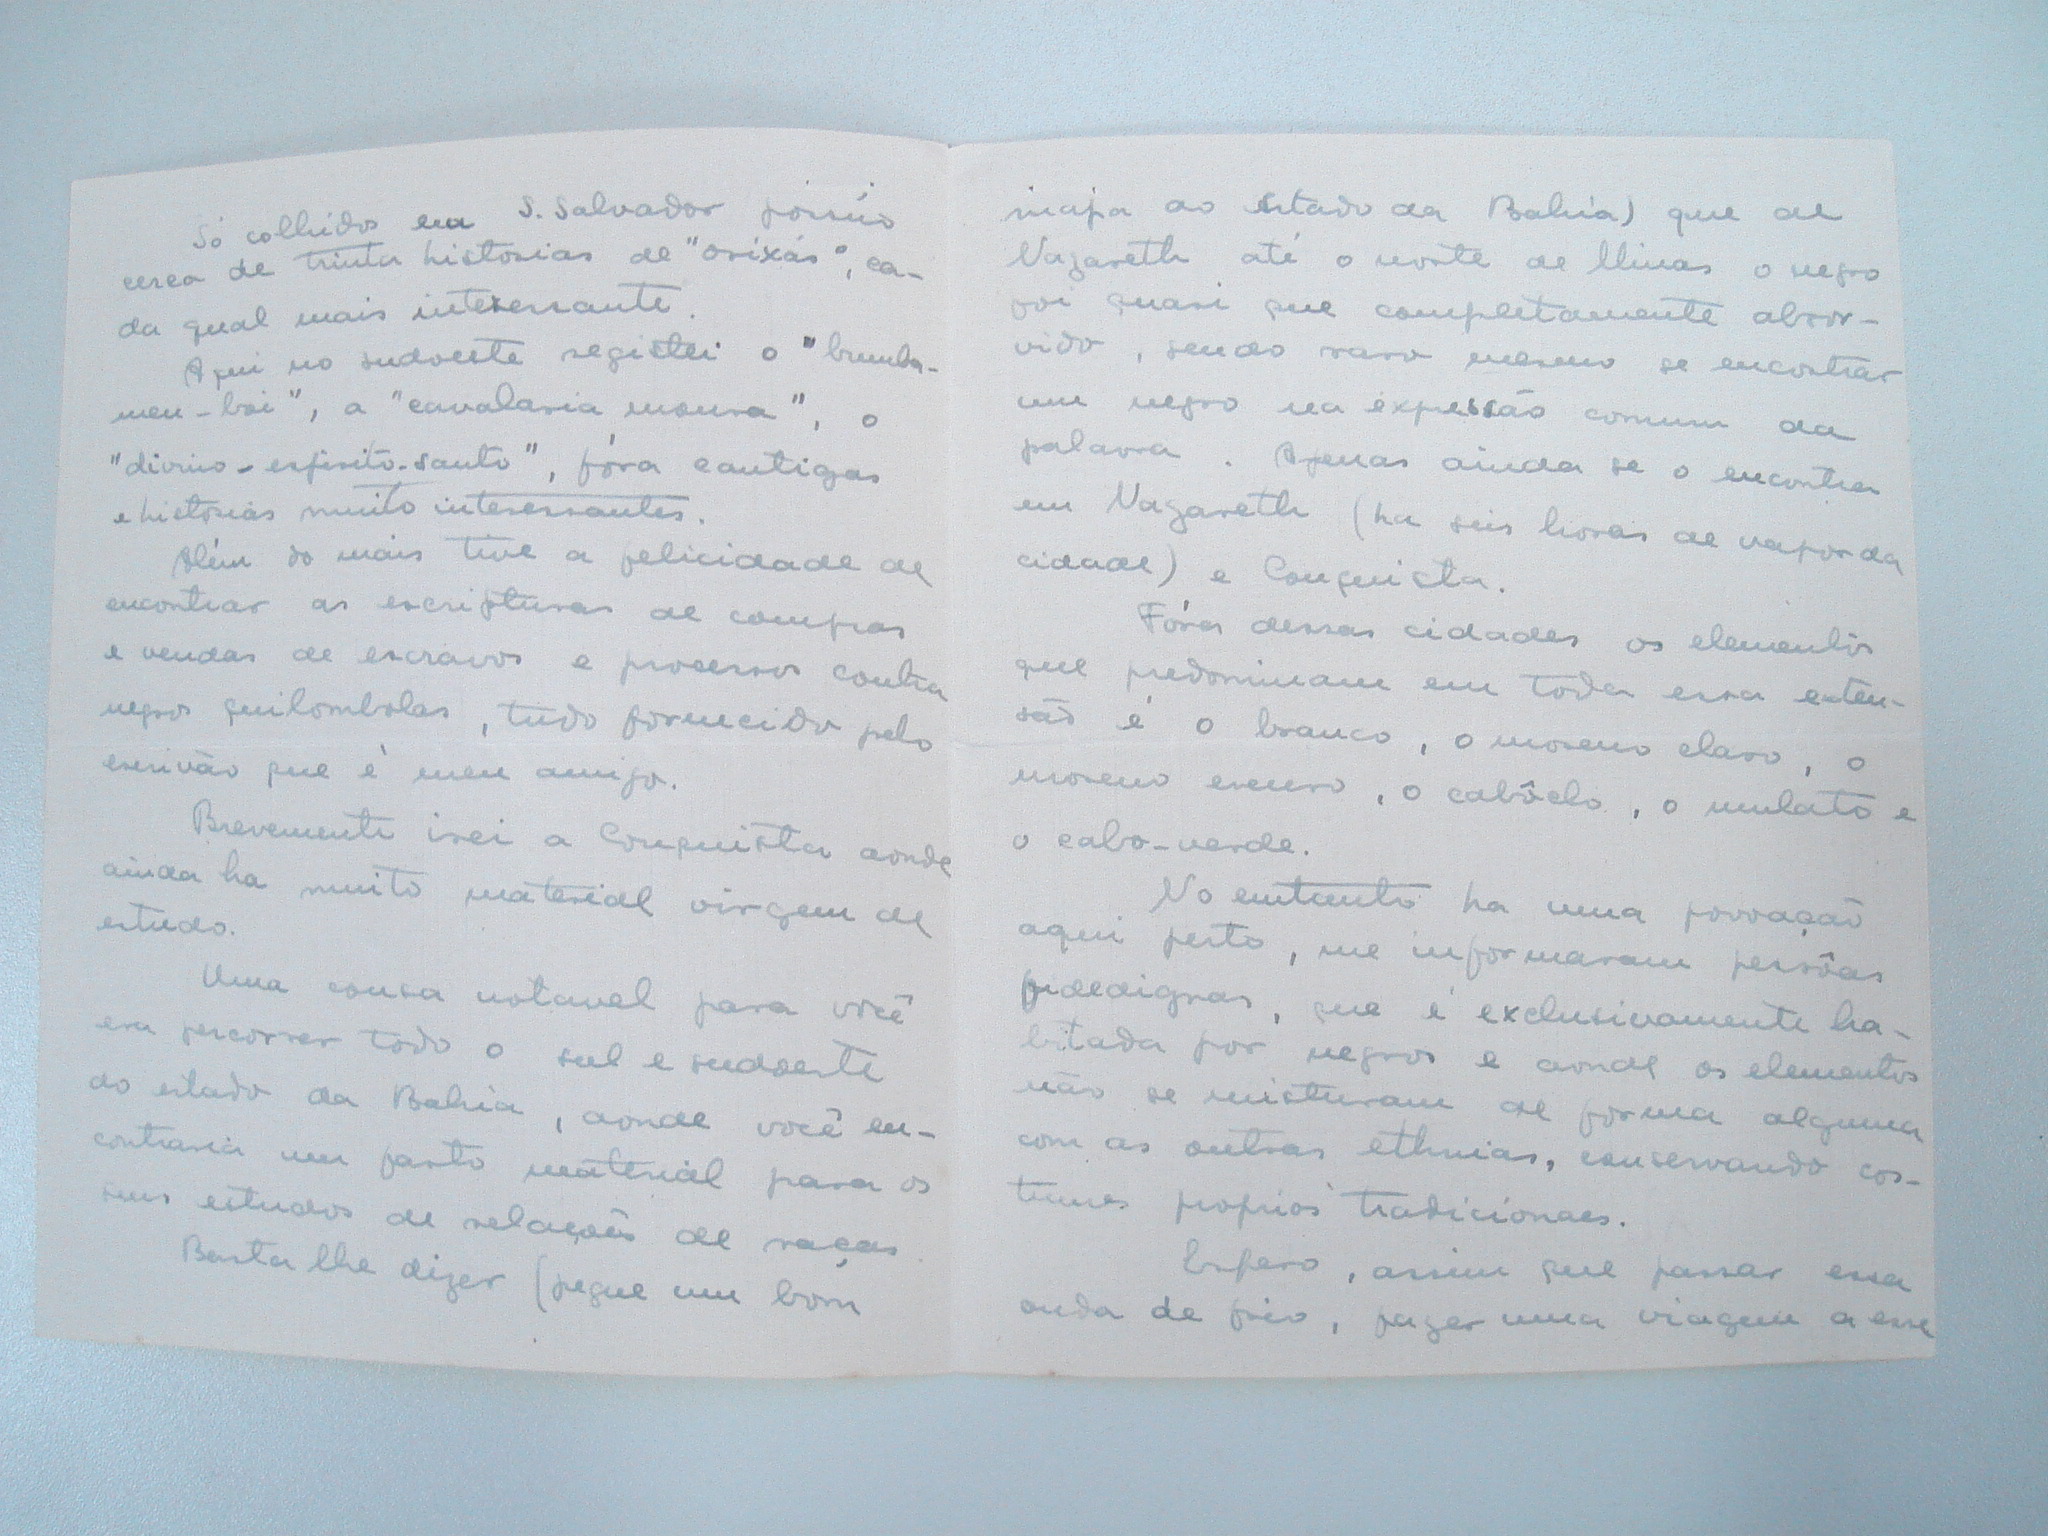 Só colhidos em S. Salvador possúo
cerca de trinta historias de "orixás", ca-
da qual mais interessante.
Aqui no sudoeste registei o "bumba-
meu-boi", a "cavalaria moura", o
"divino-espirito-santo", fóra cantigas
e historias muito interessantes.
Além do mais tive a felicidade de
encontrar as escripturas de compras
e vendas de escravos e processos contra
negros quilombolas, tudo fornecido pelo
escrivão que é meu amigo.
Brevemente irei a Conquista aonde
ainda ha muito material virgem de
estudo.
Uma cousa notavel para você
era percorrer todo o sul e sudoeste
do estado da Bahia, aonde você en-
contraria um farto material para os
seus estudos de relações de raças.
Basta lhe dizer (pegue um bom
mapa do Estado da Bahia) que de
Nazareth até o norte de Minas o negro
foi quasi que completamente absor-
vido, sendo raro mesmo se encontrar
um negro na expressão comum da
palavra. Apenas ainda se o encontra
em Nazareth (ha seis horas de vapor da
cidade) e Conquista.
Fóra dessas cidades os elementos
que predominam em toda essa exten-
são é o branco, o moreno claro, o
moreno escuro, o cabôclo, o mulato e
o cabo-verde.
No emtanto ha uma povoação
aqui perto, me informaram pessôas
fidedignas, que é exclusivamente ha-
bitada por negros e aonde os elementos
não se misturam de forma alguma
com as outras ethnias, conservando cos-
tumes proprios tradicionaes.
Espero, assim que passar essa
onda de frio, fazer uma viagem a esse